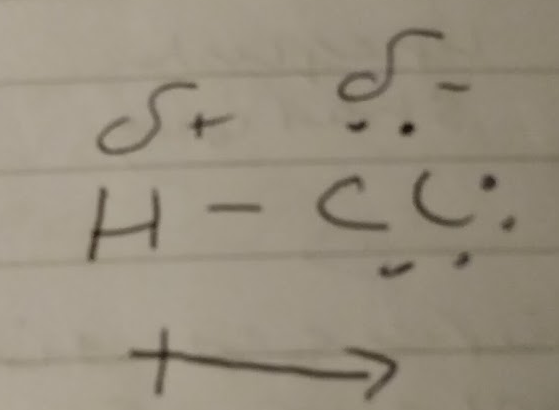 δ+ δ-
H - Cl